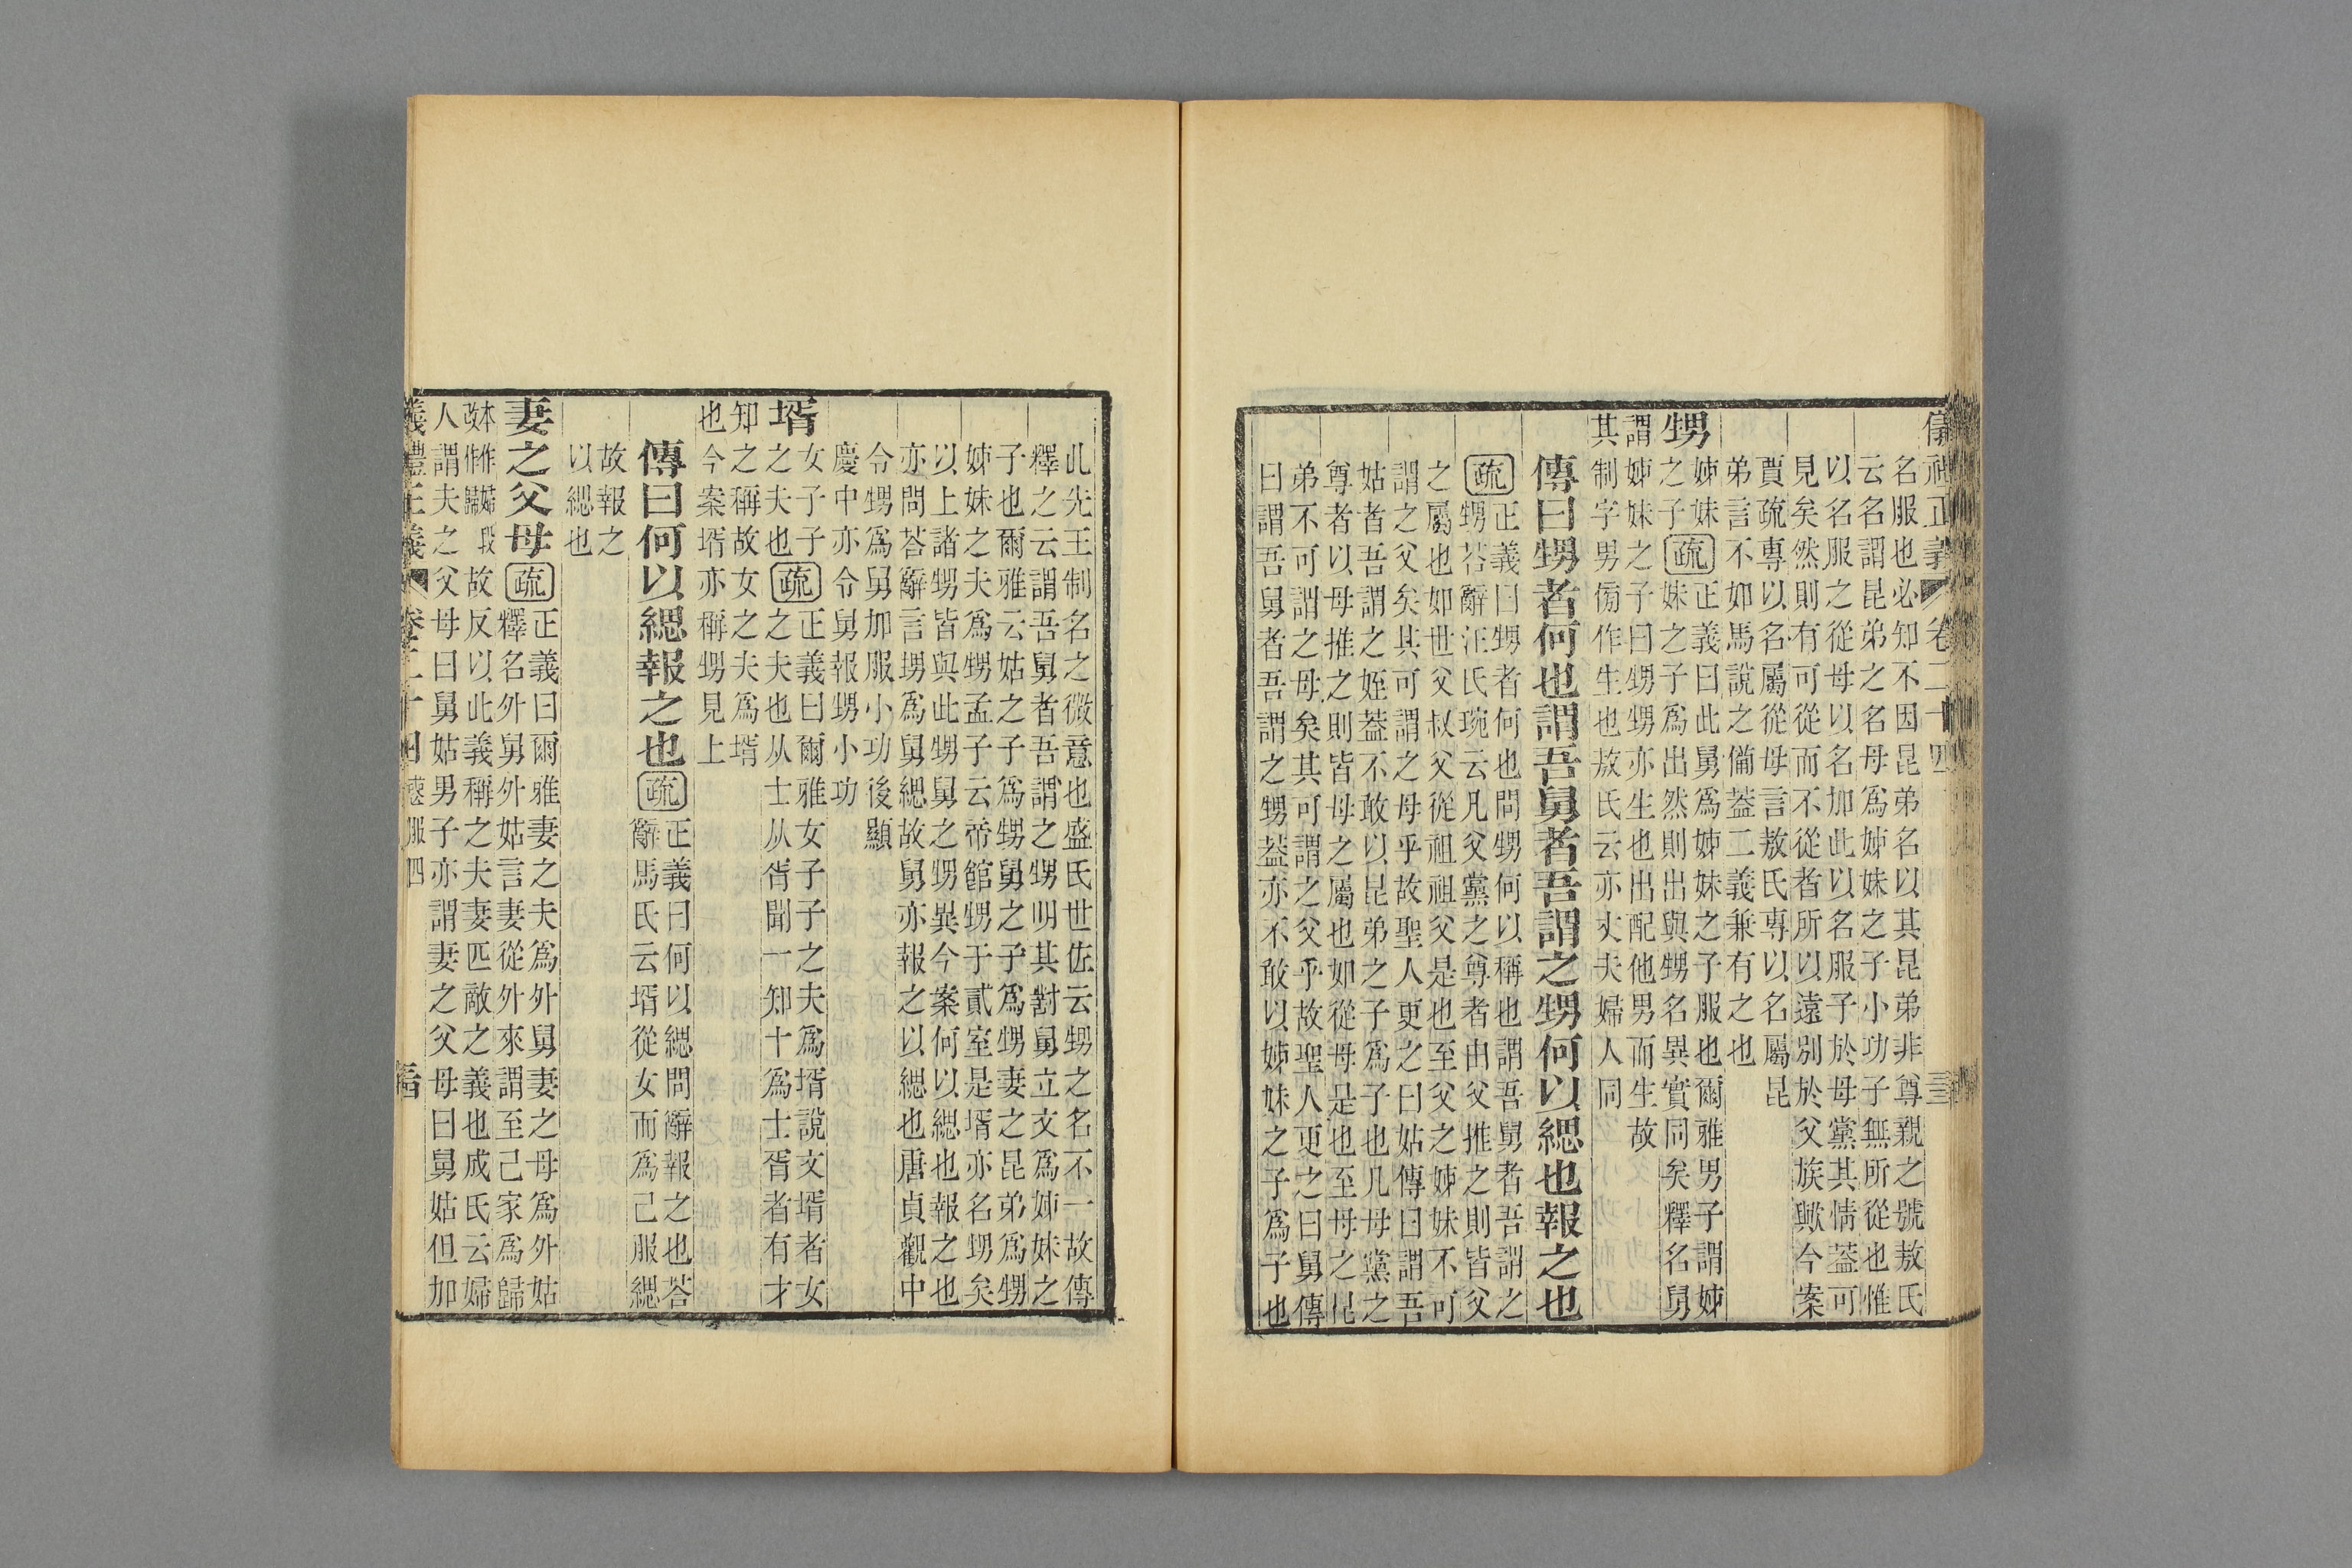 名服也必知不因昆弟名以其昆弟非尊親之號敖氏
云名謂昆弟之名母爲姊妹之子小功子無所從也惟
以名服之從母以名加此以名服子於母黨其情蓋可
見矣然則有可從而不從者所以遠別於父族歟今案
賈疏專以名屬從母言敖氏專以名屬昆
弟言不如馬說之備蓋二義兼有之也
甥
姊妹之子
疏
正義曰此舅爲姊妹之子服也爾雅男子謂姊
妹之子爲出然則出與甥名異實同矣釋名舅
謂姊妹之子曰甥甥亦生也出配他男而生故
其制字男傍作生也敖氏云亦丈夫婦人同
傳曰甥者何也謂吾舅者吾謂之甥何以緦也報之也
疏
正義曰甥者何也問甥何以稱也謂吾舅者吾謂之
甥荅辭汪氏琬云凡父黨之尊者由父推之則皆父
之屬也如世父叔父從祖祖父是也至父之姊妹不可
謂之父矣其可謂之母乎故聖人更之曰姑傳曰謂吾
姑者吾謂之姪蓋不敢以昆弟之子爲子也凡母黨之
尊者以母推之則皆母之屬也如從母是也至母之昆
弟不可謂之母矣其可謂之父乎故聖人更之曰舅傳
曰謂吾舅者吾謂之甥蓋亦不敢以姊妹之子爲子也
此先王制名之微意也盛氏世佐云甥之名不一故傳
釋之云謂吾舅者吾謂之甥明其對舅立文爲姊妹之
子也爾雅云姑之子爲甥舅之子爲甥妻之昆弟爲甥
姊妹之夫爲甥孟子云帝館甥于貳室是壻亦名甥矣
以上諸甥皆與此甥舅之甥異今案何以緦也報之也
亦問荅辭言甥爲舅緦故舅亦報之以緦也唐貞觀中
令甥爲舅加服小功後顯
慶中亦令舅報甥小功
壻
女子子
之夫也
疏
正義曰爾雅女子子之夫爲壻說文壻者女
之夫也从士从胥聞一知十爲士胥者有才
知之稱故女之夫爲壻
也今案壻亦稱甥見上
傳曰何以緦報之也
疏
正義曰何以緦問辭報之也荅
辭馬氏云壻從女而爲己服緦
故報之
以緦也
妻之父母
疏
正義曰爾雅妻之夫爲外舅妻之母爲外姑
釋名外舅外姑言妻從外來謂至己家爲歸
本作婦段
改作歸
故反以此義稱之夫妻匹敵之義也成氏云婦
人謂夫之父母曰舅姑男子亦謂妻之父母曰舅姑但加